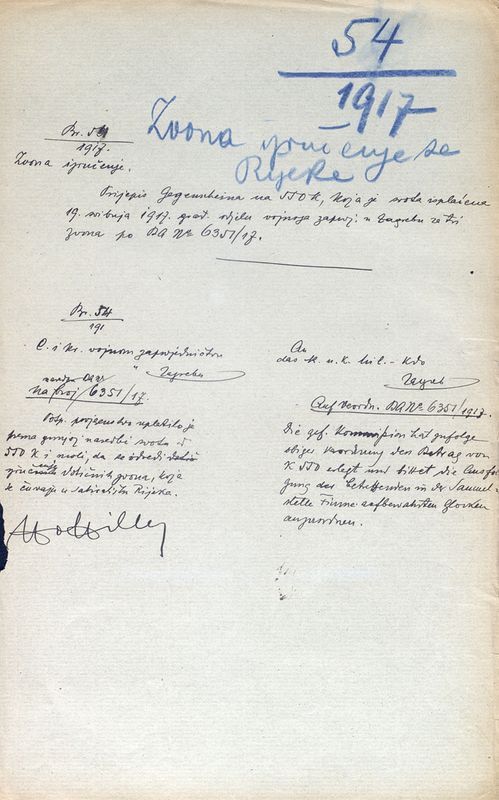 54
1917
Zvona izručenje iz
Rijeke
Br. 54
1917.
Zvona izručenje.
Prijepis Gegenscheina na 550 K, koja je svota isplaćena
19. svibnja 1917. grad. odjelu vojnoga zapovj. u Zagrebu za tri
zvona po BA No 6351/17.
Br. 54
191
C. i kr. vojnom zapovjedničtvu
" Zagrebu
na broj 6351/17.
Potp. povjerenstvo uplatilo je
prema gornjoj naredbi svotu od
550 K i moli, da se odredi
izručenje dotičnih zvona, koja
se čuvaju u sabiralištu Rijeka.
An
das k. u. k. Mil. - Kdo
Zagreb
Auf Verordn. BA No 6351/1917.
Die gef. Kommission hat zufolge
obiger Verordnung den Betrag von
K 550 erlegt und bittet die Ausfol-
gung der betreffenden in der Sammel-
stelle Fiume aufbewahrten Glocken
anzuordnen.